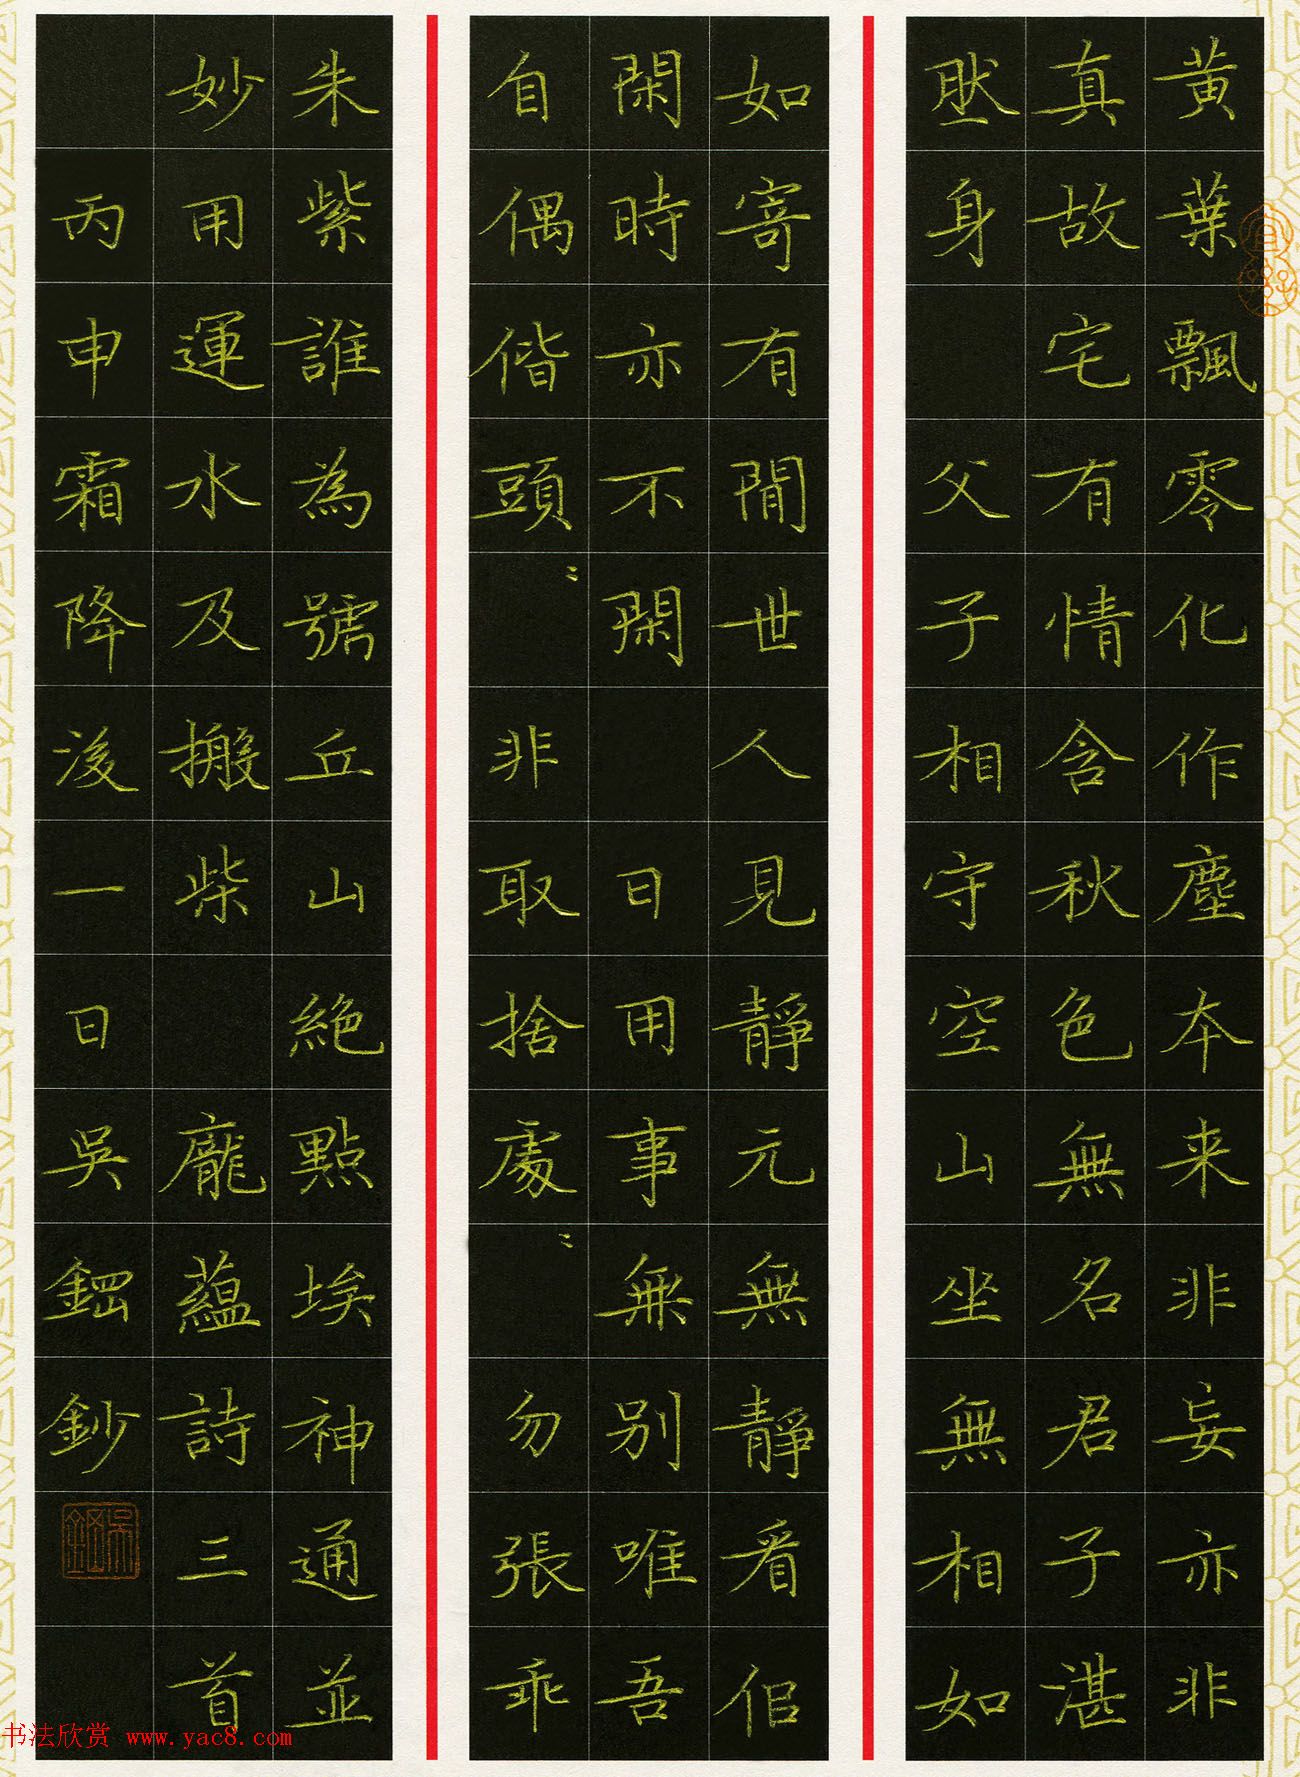 黃葉飄零化作塵本来非妄亦非
真故宅有情含秋色無名君子湛
然身 父子相守空山坐無相如
如寄有間世人見靜元無靜看佀
閑時亦不閑 日用事無別唯吾
自偶偕頭〻 非取捨處〻 勿張乖
朱紫誰為號丘山絕點埃神通並
妙用運水及搬柴 龐蘊詩三首
丙申霜降後一日吳鋼鈔
吳鋼
书法欣赏 www.yac8.com